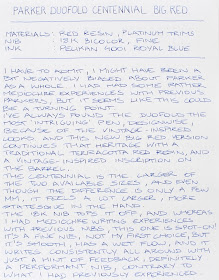 PARKER DUOFOLD CENTENNIAL BIG RED
MATERIALS: RED RESIN, PLATINUM TRIMS
NIB 18K BICOLOR, FINE
INK PELIKAN 4001 ROYAL BLUE
I HAVE TO ADMIT, I MIGHT HAVE BEEN A
BIT NEGATIVELY BIASED ABOUT PARKER
AS A WHOLE. I HAD SOME RATHER
MEDIOCRE EXPERIENCES WITH PREVIOUS
PARKERS, BUT IT SEEMS LIKE THIS COULD
BE A TURNING POINT.
I'VE ALWAYS FOUND THE DUOFOLD THE
MOST INTRIGUING PEN, DEFINITELY
BECAUSE OF THE VINTAGE-INSPIRED
LOOKS AND THIS NEW BIG RED VERSION
CONTINUES THAT HERITAGE WITH A
TRADITIONAL TERRACOTTA RED RESIN, AND
A VINTAGE-INSPIRED INSCRIPTION ON
THE BARREL.
THE CENTENNIAL IS THE LARGER OF
THE TWO AVAILABLE SIZES, AND EVEN
THOUGH THE DIFFERENCE IS ONLY A FEW
MM, IT FEELS A LOT LARGER, MORE
STATESQUE IN THE HAND.
THE 18K NIB TOPS IT OFF, AND WHEREAS
I HAD MEDIOCRE WRITING EXPERIENCES
WITH PREVIOUS NIBS, THIS ONE IS SPOT-ON!
IT'S A FINE NIB, NOT MY FIRST CHOICE, BUT
IT'S SMOOTH, HAS A WET FLOW, AND IT
WRITES CONSISTENTLY ALL AROUND WITH
JUST A HINT OF FEEDBACK. DEFINITELY
A PERFORMANT NIB, CONTRARY TO
WHAT I HAD PREVIOUSLY EXPERIENCED.